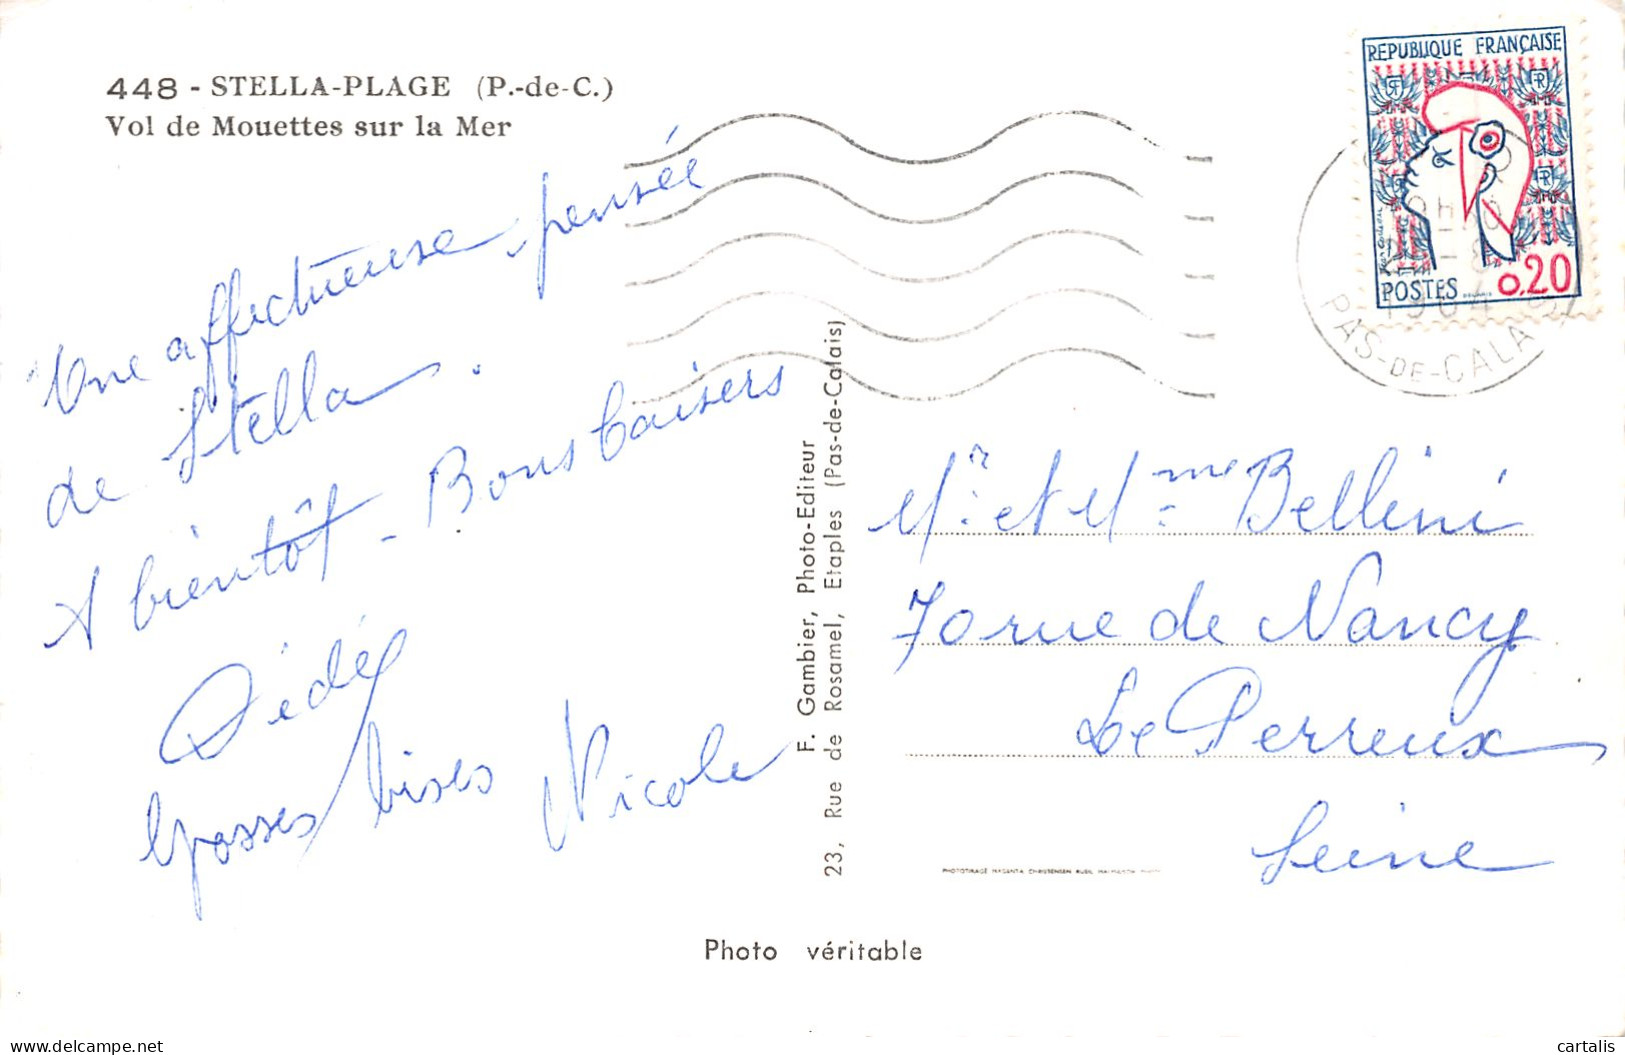 448 - STELLA-PLAGE (P.-de-C.)
Vol de Mouettes sur la Mer
Une affectueuse pensée
de Stella.
A bientôt - Bons baisers
Dédé
Grosses bises Nicole
F. Gambier, Photo-Editeur
23, Rue de Rosamel, Etaples (Pas-de-Calais)
REPUBLIQUE FRANÇAISE
POSTES 0,20
1964
PAS-DE-CALA
Mr. et Mme Bellini
70 rue de Nancy
Le Perreux
Seine
Photo véritable
cartalis